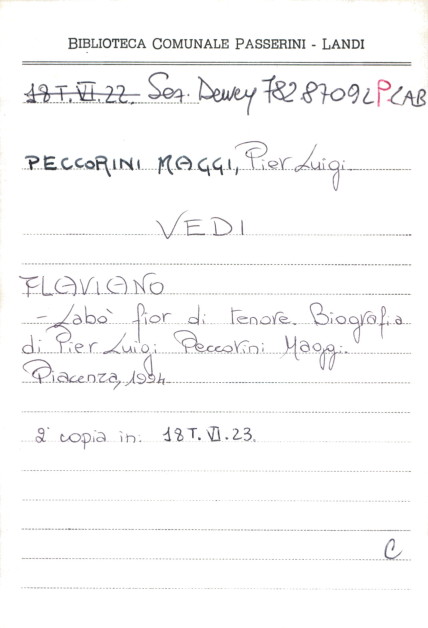 BIBLIOTECA COMUNALE PASSERINI - LANDI
18T.VI.22. Sez. Dewey 782 8709LPLAB
PECCORINI MAGGI, Pier Luigi
VEDI
FLAVIANO
- Labò fior di tenore. Biografia
di Pier Luigi Peccorini Maggi.
Piacenza, 1994
2ª copia in: 18T.VI.23.
C